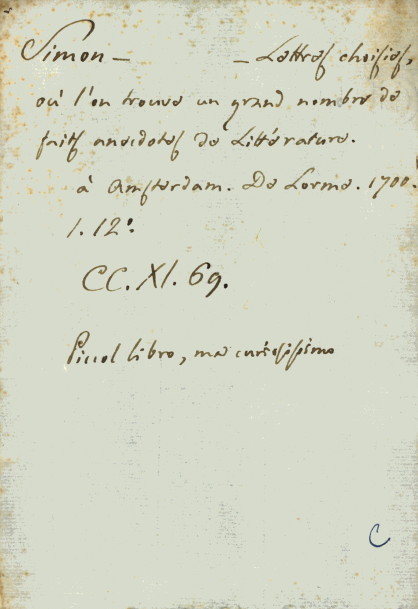 Simon – – Lettres choisies,
où l'on trouve un grand nombre de
faits anecdotes de Littérature.
à Amsterdam. De Lorme. 1700.
1. 12°.
CC. XI. 69.
Piccol libro, ma curiosissimo
C